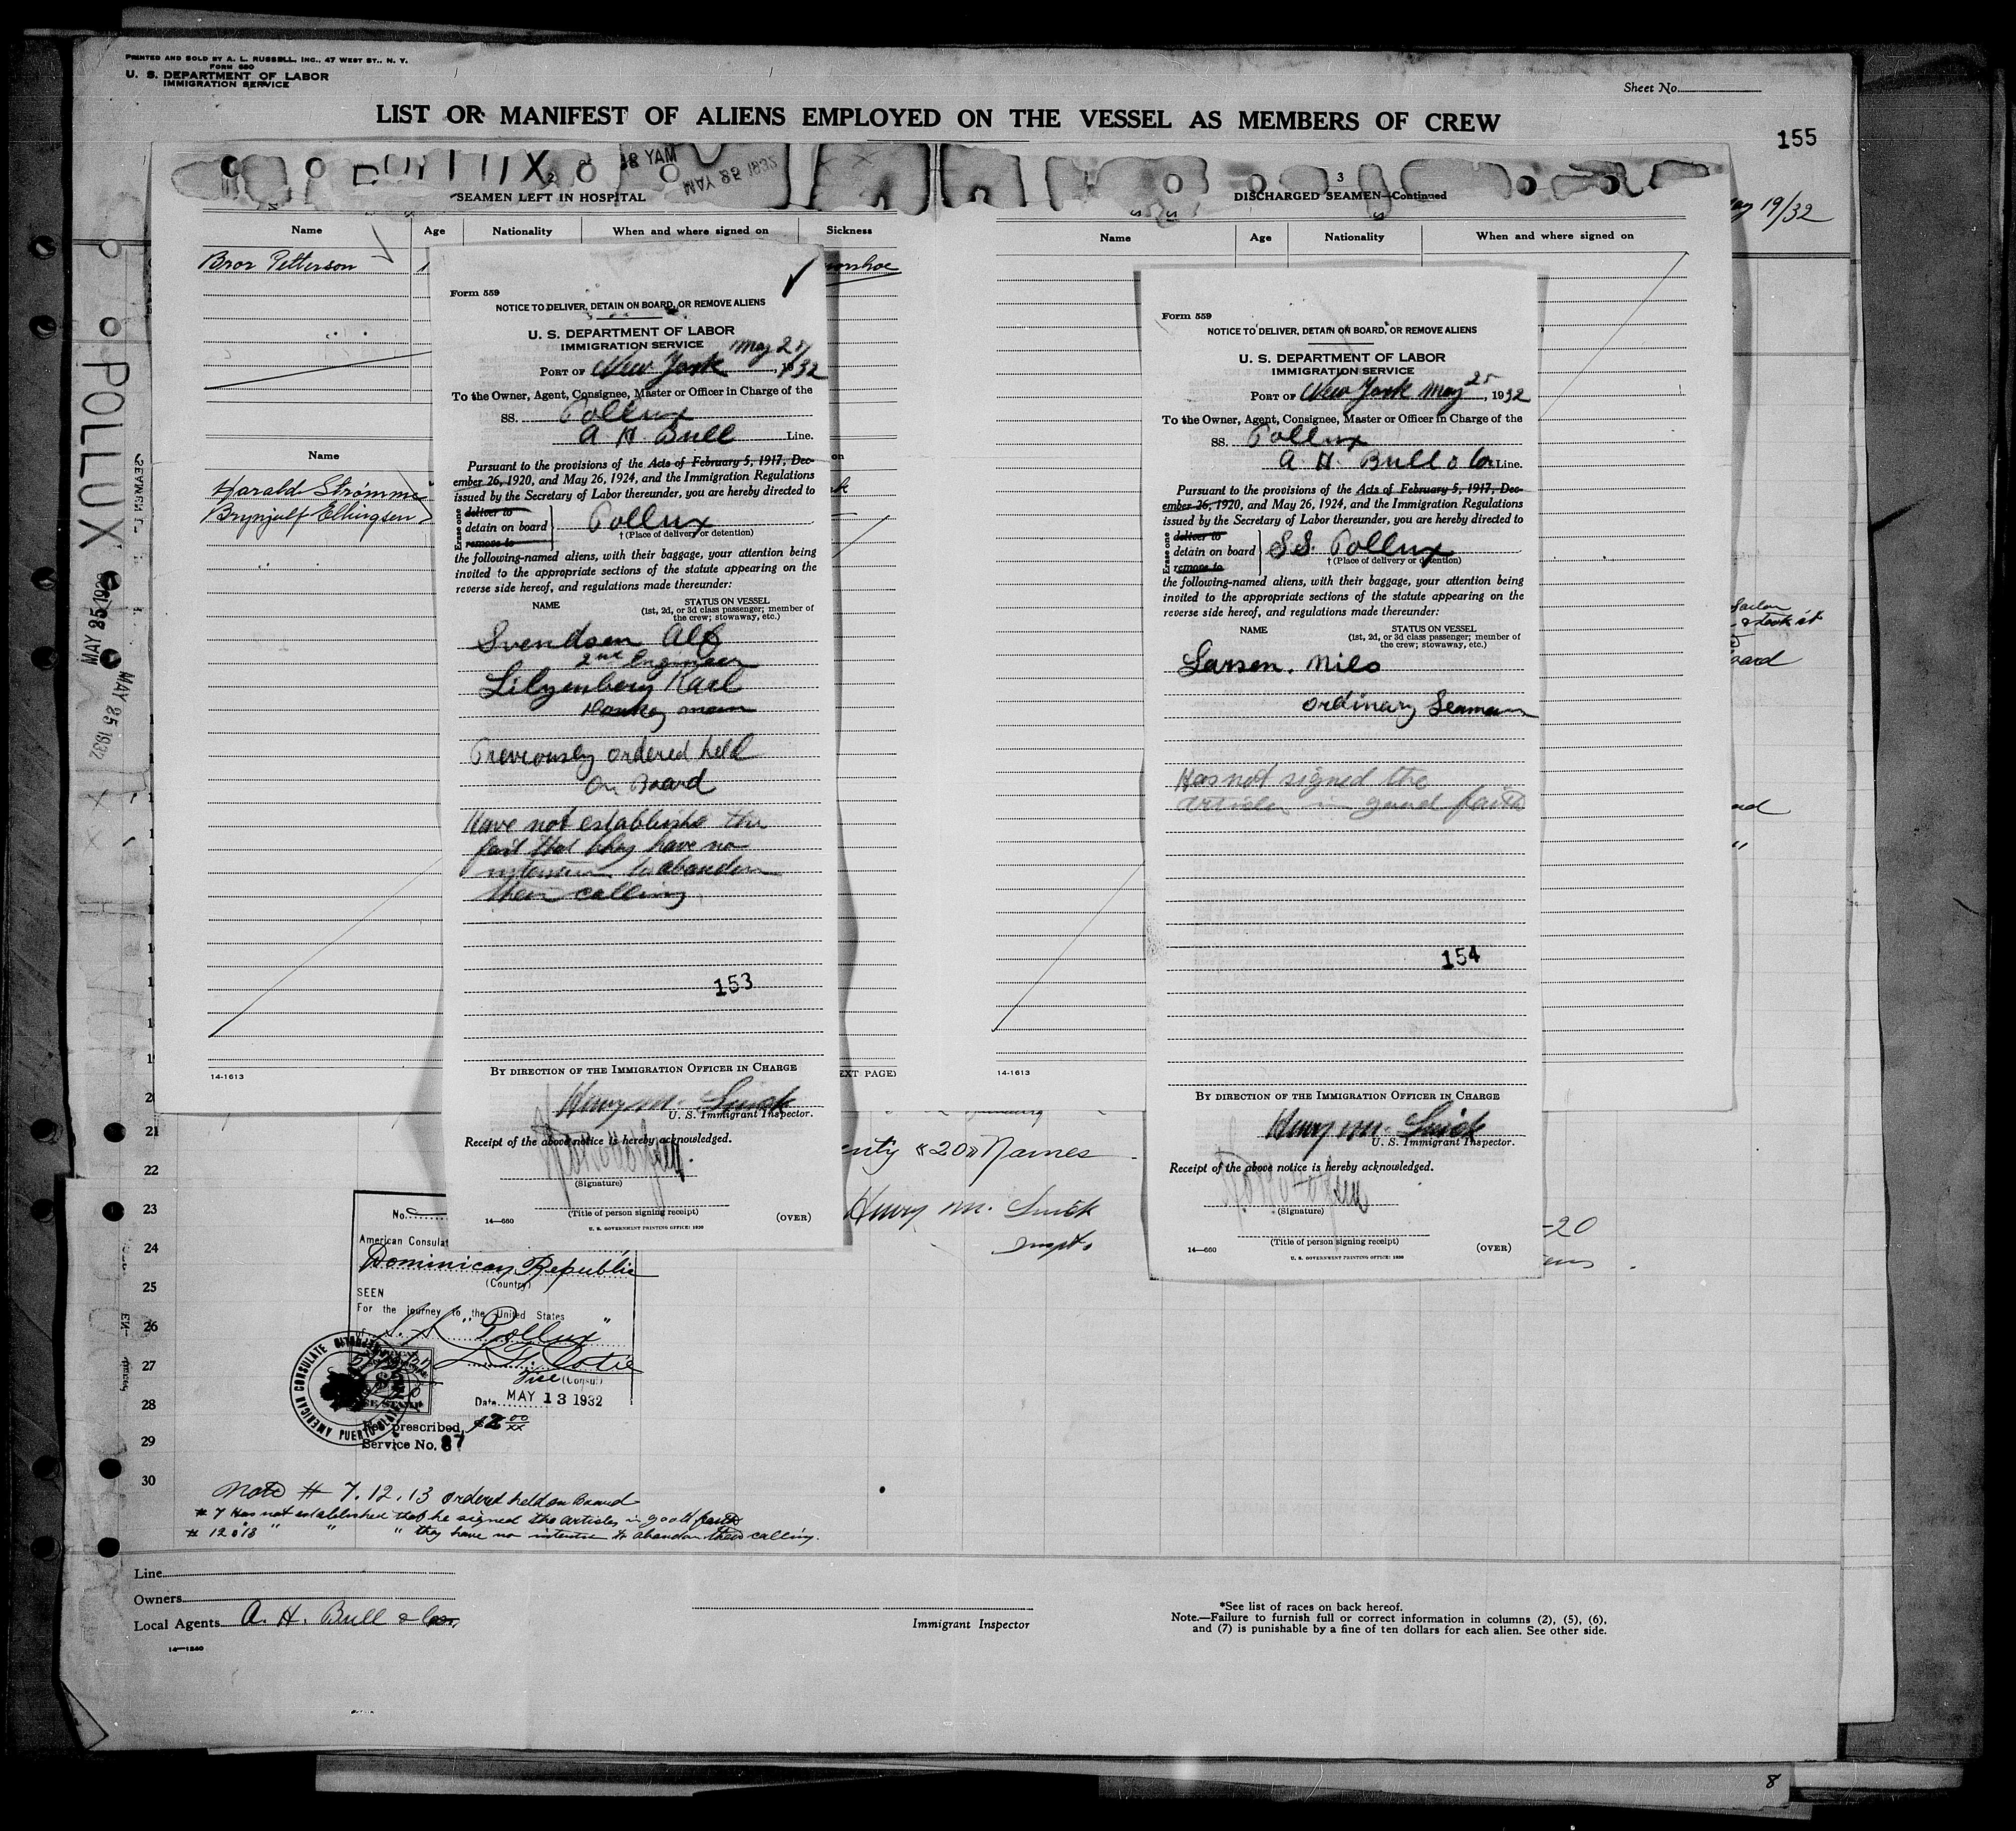 PRINTED AND SOLD BY A. L. RUSSELL, INC., 47 WEST ST., N. Y.
FORM 680
U. S. DEPARTMENT OF LABOR
IMMIGRATION SERVICE
Sheet No.
LIST OR MANIFEST OF ALIENS EMPLOYED ON THE VESSEL AS MEMBERS OF CREW
155
19/32
POLLUX
MAY 25 1932
MAY 25 1932
MAY 25 1932
2
SEAMEN LEFT IN HOSPITAL
Name Age Nationality When and where signed on Sickness
Bror Petterson
Name
Harald Strømme
Brynjulf Ellingsen
14-1613
3
DISCHARGED SEAMEN—Continued
Name Age Nationality When and where signed on
14-1613
Form 559
NOTICE TO DELIVER, DETAIN ON BOARD, OR REMOVE ALIENS
U. S. DEPARTMENT OF LABOR
IMMIGRATION SERVICE
PORT OF New York May 25, 1932
To the Owner, Agent, Consignee, Master or Officer in Charge of the
SS. Pollux
A H Bull Line.
Pursuant to the provisions of the Acts of February 5, 1917, Dec-
ember 26, 1920, and May 26, 1924, and the Immigration Regulations
issued by the Secretary of Labor thereunder, you are hereby directed to
Erase one
deliver to
detain on board Pollux
remove to
†(Place of delivery or detention)
the following-named aliens, with their baggage, your attention being
invited to the appropriate sections of the statute appearing on the
reverse side hereof, and regulations made thereunder:
NAME STATUS ON VESSEL
(1st, 2d, or 3d class passenger; member of
the crew; stowaway, etc.)
Svendsen Alf
2nd Engineer
Lilyenberg Karl
Donkey man
Previously ordered held
On Board
Have not establishe the
fact that they have no
intention to abandon
their calling
153
BY DIRECTION OF THE IMMIGRATION OFFICER IN CHARGE
Henry M.
U. S. Immigrant Inspector.
Receipt of the above notice is hereby acknowledged.
(Signature)
(Title of person signing receipt)
14—660
U. S. GOVERNMENT PRINTING OFFICE: 1930
(OVER)
Form 559
NOTICE TO DELIVER, DETAIN ON BOARD, OR REMOVE ALIENS
U. S. DEPARTMENT OF LABOR
IMMIGRATION SERVICE
PORT OF New York May 25, 1932
To the Owner, Agent, Consignee, Master or Officer in Charge of the
SS. Pollux
A. H. Bull & Co. Line.
Pursuant to the provisions of the Acts of February 5, 1917, Dec-
ember 26, 1920, and May 26, 1924, and the Immigration Regulations
issued by the Secretary of Labor thereunder, you are hereby directed to
Erase one
deliver to
detain on board S.S. Pollux
remove to
†(Place of delivery or detention)
the following-named aliens, with their baggage, your attention being
invited to the appropriate sections of the statute appearing on the
reverse side hereof, and regulations made thereunder:
NAME STATUS ON VESSEL
(1st, 2d, or 3d class passenger; member of
the crew; stowaway, etc.)
Larsen. Nils
ordinary Seaman
Has not signed the
articles in good faith
154
BY DIRECTION OF THE IMMIGRATION OFFICER IN CHARGE
Henry M.
U. S. Immigrant Inspector.
Receipt of the above notice is hereby acknowledged.
(Signature)
(Title of person signing receipt)
14—660
U. S. GOVERNMENT PRINTING OFFICE: 1930
(OVER)
EXT PAGE)
21
22
23
24
25
26
27
28
29
30
«20» Names
Henry M.
Inspt.
-20
No.
American Consulat
Dominican Republic
(Country)
SEEN
For the journey to the United States
S.S. "Pollux"
Vice (Consul)
Date MAY 13 1932
AMERICAN CONSULATE
prescribed, $2 00/xx
Service No. 87
Note # 7.12.13 ordered held on Board
# 7 Has not established that he signed the articles in good faith
# 12 & 13 " " " they have no intention to abandon their calling.
Line
Owners
Local Agents A. H. Bull & Co.
14—1240
Immigrant Inspector
*See list of races on back hereof.
Note.—Failure to furnish full or correct information in columns (2), (5), (6),
and (7) is punishable by a fine of ten dollars for each alien. See other side.
8